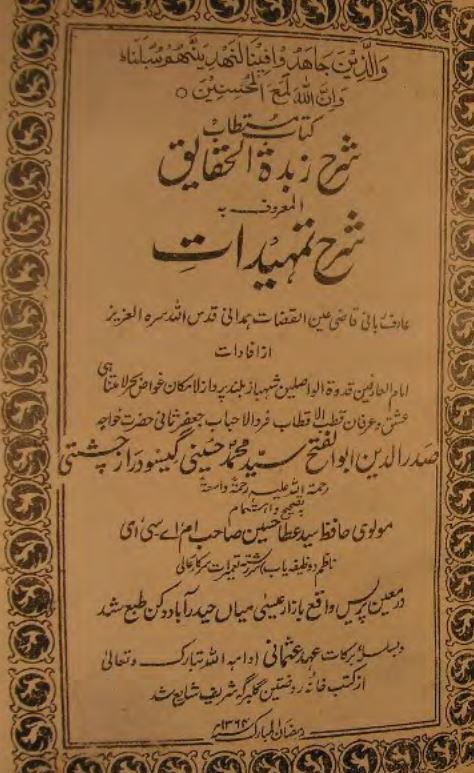 وَالَّذِيْنَ جَاهَدُوْا فِيْنَا لَنَهْدِيَنَّهُمْ سُبُلَنَا
وَاِنَّ اللّٰهَ لَمَعَ الْمُحْسِنِيْنَ ○
کتاب مستطاب
شرح زبدة الحقایق
المعروف بہ
شرح تمہیدات
عارف ربانی قاضی عین القضات ہمدانی قدس اللہ سرہ العزیز
از افادات
امام العارفین قدوة الواصلین شہباز بلند پرواز لامکان غواص بحر لامتناہی
عشق و عرفان قطب الاقطاب فرد الاحباب جعفر ثانی حضرت خواجہ
صدر الدین ابوالفتح سید محمد حسینی گیسو دراز چشتی
رحمة اللہ علیہ رحمة واسعة
بتصحیح و اہتمام
مولوی حافظ سید عطا حسین صاحب ام اے سی ای
ناظم وظیفہ یاب سررشتہ تعمیرات سرکار عالی
در معین پریس واقع بازار عیسیٰ میاں حیدرآباد دکن طبع شد
و بسلسلۂ برکات عہد عثمانی ادامہ اللہ تبارک وتعالیٰ
از کتب خانۂ روضتین گلبرگہ شریف شایع شد
رمضان المبارک ۱۳۶۴ھ